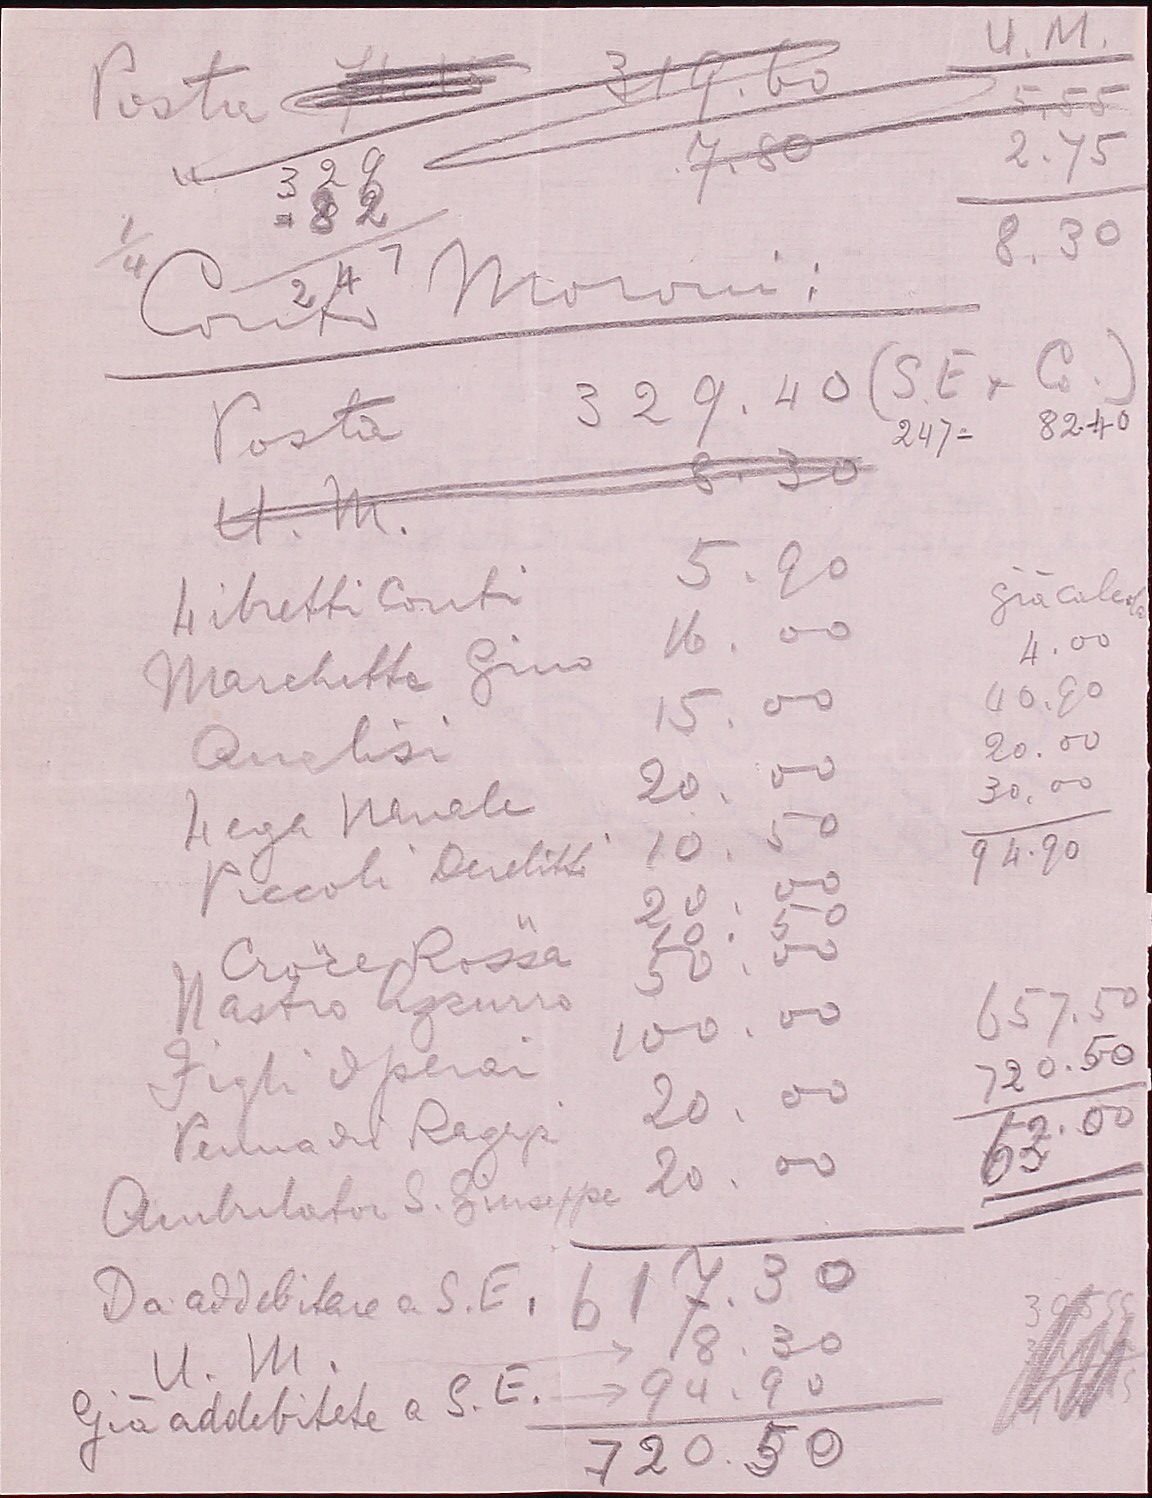 U. M.
Posta 319.60 5.55
" 7.80 2.75
329
- 82
1/4
247
8.30
Conto Moroni:
Posta 329.40 (S.E + Co.)
247= 82.40
U. M. 8.30
Libretti Conti 5.90
già calcola
Marchette Gino 16.00 4.00
Analisi 15.00 40.90
Lega Navale 20.00 20.00
30.00
Piccoli Derelitti 10.50 94.90
20.00
Croce Rossa 10.50
Nastro Azzurro 50.00
Figli Operai 100.00 657.50
720.50
Ragazzi 20.00 62.00
Ambulator S. Giuseppe 20.00
Da addebitare a S.E. 617.30
U. M. → 8.30
Già addebitate a S.E. → 94.90
720.50